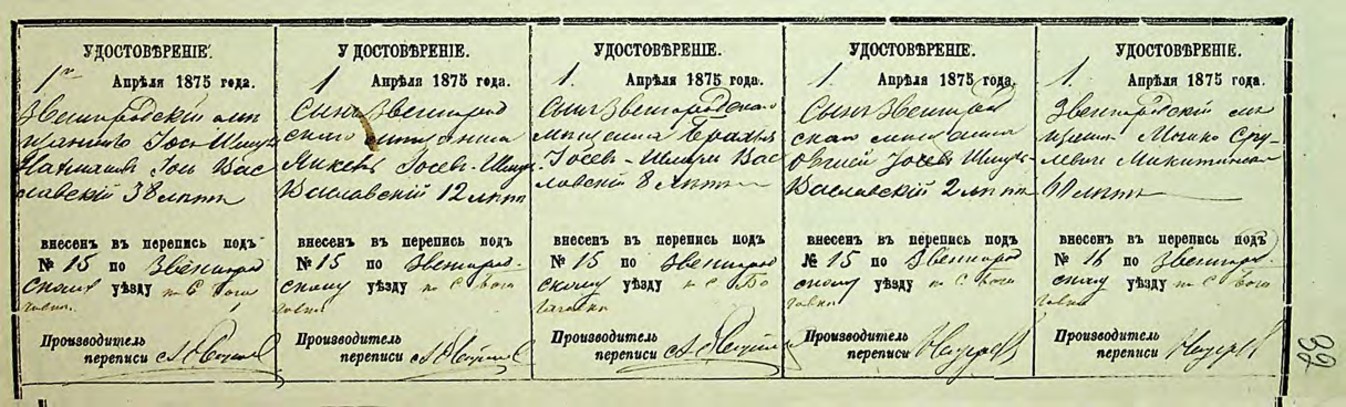 УДОСТОВѢРЕНІЕ.
1го Апрѣля 1875 года.
Звенигородскій мѣ
щанинъ Іось Шмуль
Нахмановъ Іось Вас
лавскій 38 лѣтъ
внесенъ въ перепись подъ
№ 15 по Звенигород
скому уѣзду по с Бога
Производитель
переписи
УДОСТОВѢРЕНІЕ.
1 Апрѣля 1875 года.
Сынъ Звенигород
скаго мѣщанина
Янкель Іосев-Шмул
Ваславскій 12 лѣтъ
внесенъ въ перепись подъ
№ 15 по Звенигород-
скому уѣзду по с Бога
Производитель
переписи
УДОСТОВѢРЕНІЕ.
1. Апрѣля 1875 года.
Сынъ Звенигородскаго
мѣщанина
Іосев-Шмул Вас
лавскій 8 лѣтъ
внесенъ въ перепись подъ
№ 15 по Звенигород
скому уѣзду по с Бо
Производитель
переписи
УДОСТОВѢРЕНІЕ.
1. Апрѣля 1875 года.
Сынъ Звенигород
скаго мѣщанина
Іосев Шмул-
Ваславскій 2 лѣтъ
внесенъ въ перепись подъ
№ 15 по Звенигород
скому уѣзду по с Бога
Производитель
переписи
УДОСТОВѢРЕНІЕ.
1. Апрѣля 1875 года.
Звенигородскій мѣ
щанинъ Мошко Сру
левичъ Микитянскій
60 лѣтъ
внесенъ въ перепись подъ
№ 16 по Звенигород-
скому уѣзду по с Бога
Производитель
переписи